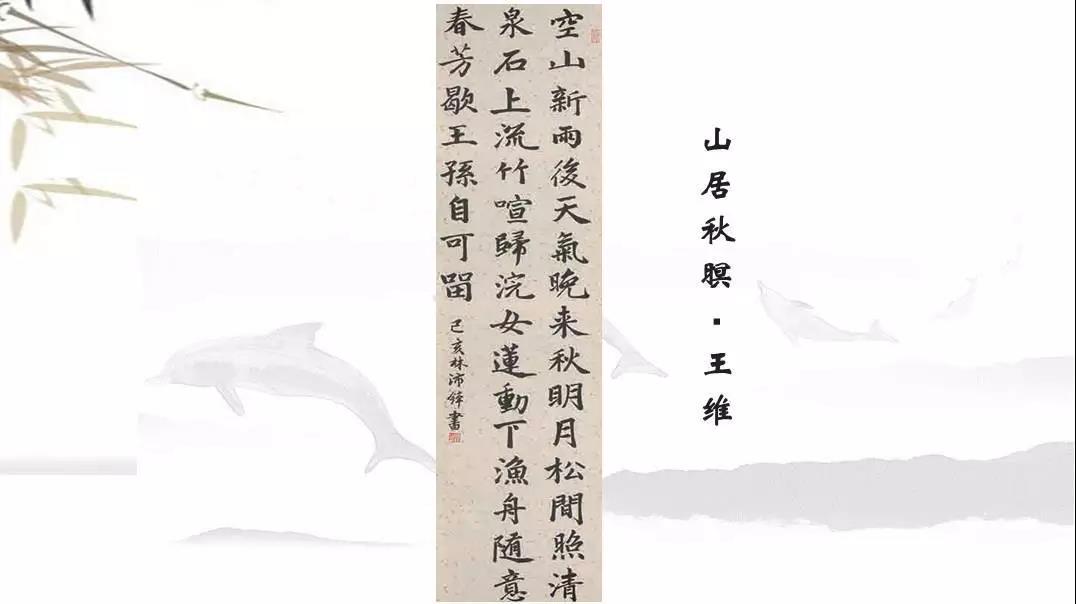 山居秋暝·王维
空山新雨後天氣晚来秋明月松間照清
泉石上流竹喧歸浣女蓮動下漁舟随意
春芳歇王孫自可留
己亥林沛書